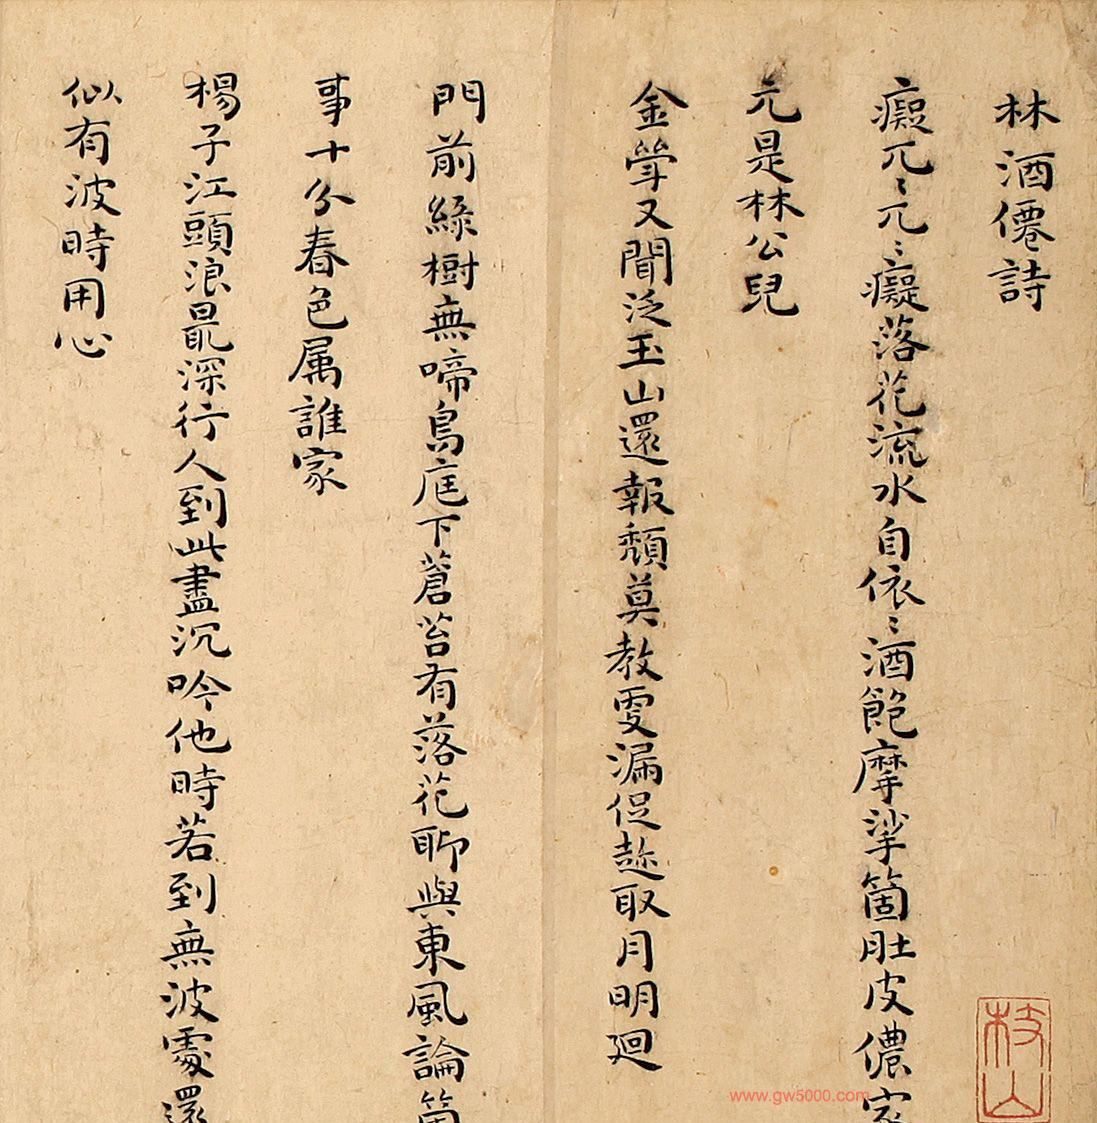 林酒僊詩
癡兀〻兀〻癡落花流水自依〻酒飽摩挲箇肚皮儂家
元是林公兒
金斝又聞泛玉山還報頹莫教更漏促趂取月明廻
門前綠樹無啼鳥庭下蒼苔有落花聊與東風論箇
事十分春色属誰家
楊子江頭浪最深行人到此盡沉吟他時若到無波處還
似有波時用心
枝山
www.gw5000.com